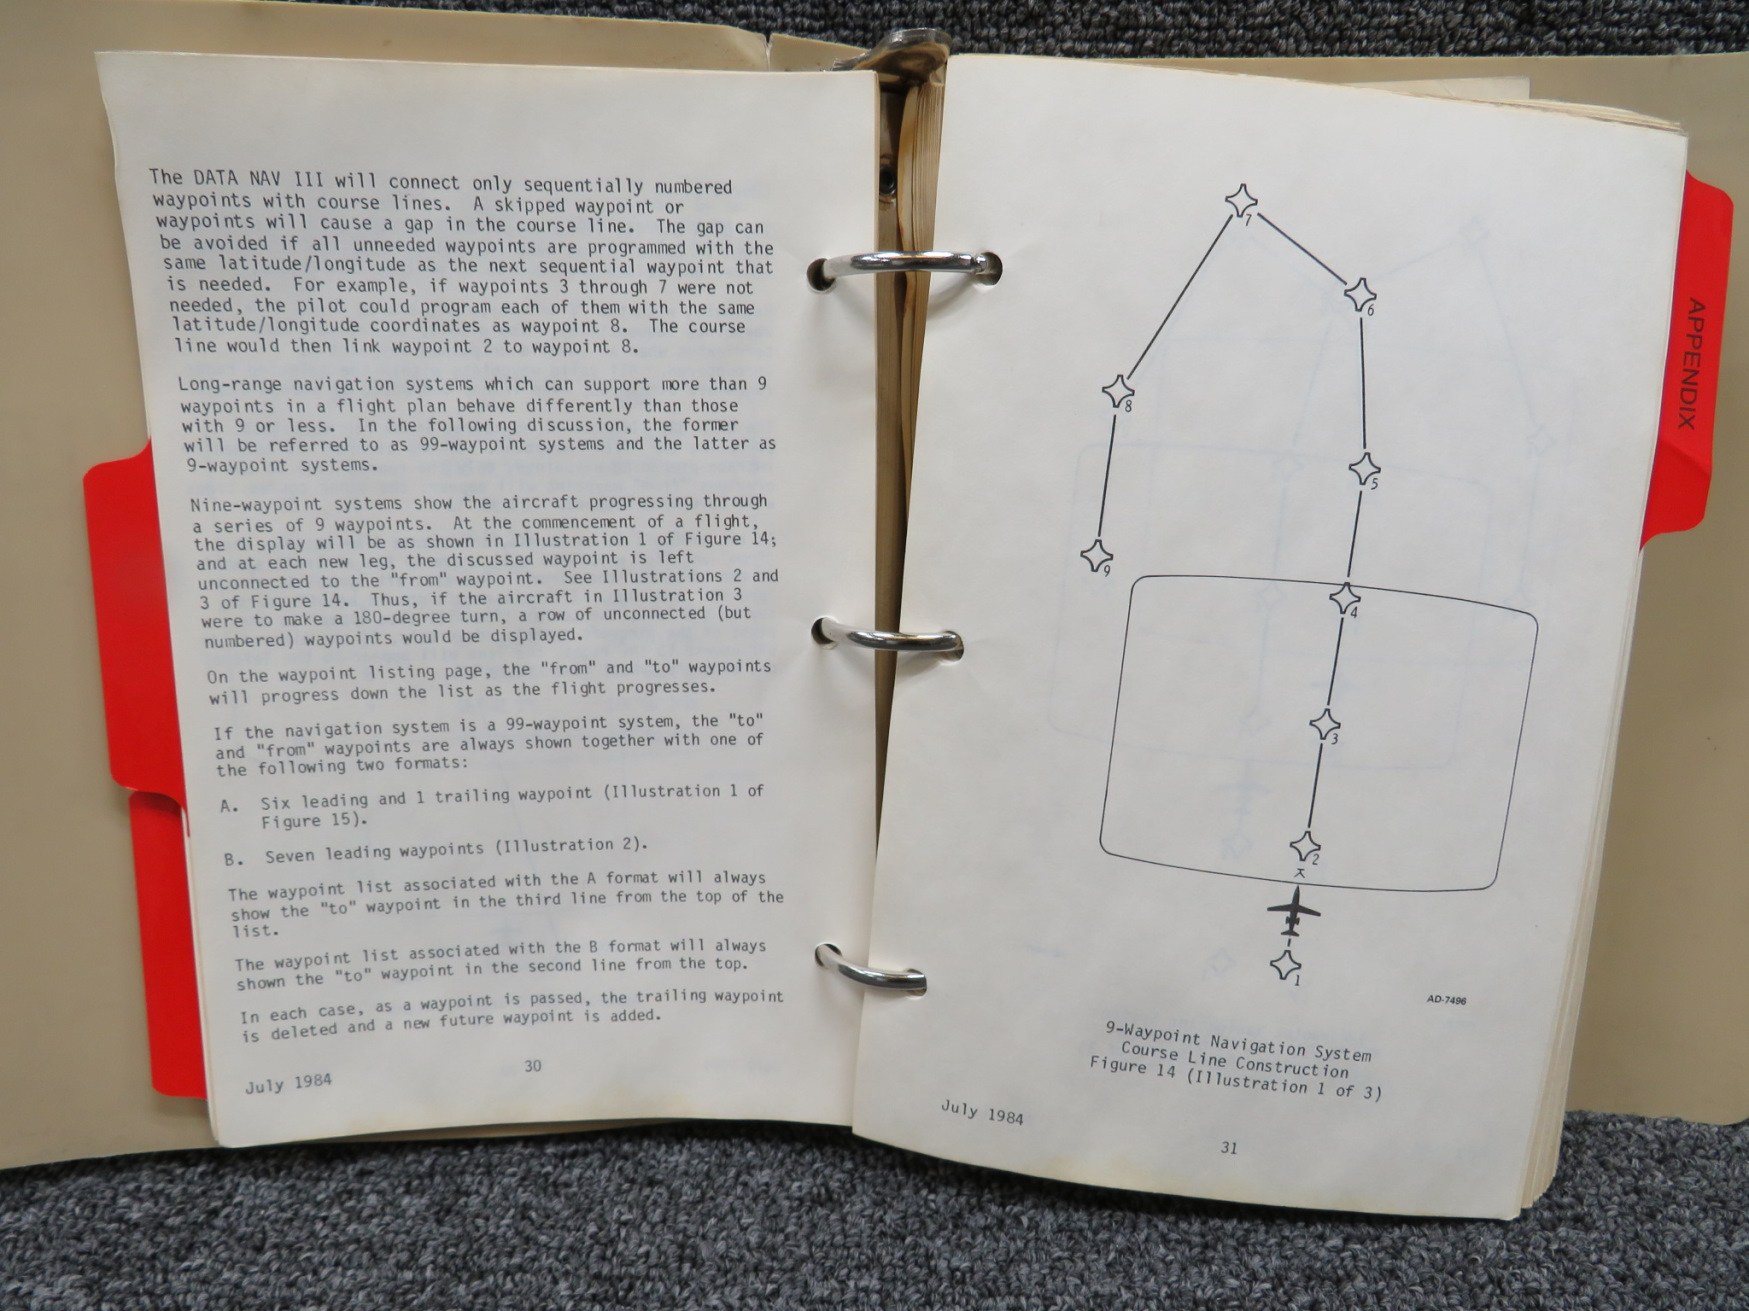 The DATA NAV III will connect only sequentially numbered
waypoints with course lines. A skipped waypoint or
waypoints will cause a gap in the course line. The gap can
be avoided if all unneeded waypoints are programmed with the
same latitude/longitude as the next sequential waypoint that
is needed. For example, if waypoints 3 through 7 were not
needed, the pilot could program each of them with the same
latitude/longitude coordinates as waypoint 8. The course
line would then link waypoint 2 to waypoint 8.
Long-range navigation systems which can support more than 9
waypoints in a flight plan behave differently than those
with 9 or less. In the following discussion, the former
will be referred to as 99-waypoint systems and the latter as
9-waypoint systems.
Nine-waypoint systems show the aircraft progressing through
a series of 9 waypoints. At the commencement of a flight,
the display will be as shown in Illustration 1 of Figure 14;
and at each new leg, the discussed waypoint is left
unconnected to the "from" waypoint. See Illustrations 2 and
3 of Figure 14. Thus, if the aircraft in Illustration 3
were to make a 180-degree turn, a row of unconnected (but
numbered) waypoints would be displayed.
On the waypoint listing page, the "from" and "to" waypoints
will progress down the list as the flight progresses.
If the navigation system is a 99-waypoint system, the "to"
and "from" waypoints are always shown together with one of
the following two formats:
A. Six leading and 1 trailing waypoint (Illustration 1 of
Figure 15).
B. Seven leading waypoints (Illustration 2).
The waypoint list associated with the A format will always
show the "to" waypoint in the third line from the top of the
list.
The waypoint list associated with the B format will always
shown the "to" waypoint in the second line from the top.
In each case, as a waypoint is passed, the trailing waypoint
is deleted and a new future waypoint is added.
30
July 1984
7
6
8
5
9
4
3
2
1
AD-7496
9-Waypoint Navigation System
Course Line Construction
Figure 14 (Illustration 1 of 3)
July 1984
31
APPENDIX